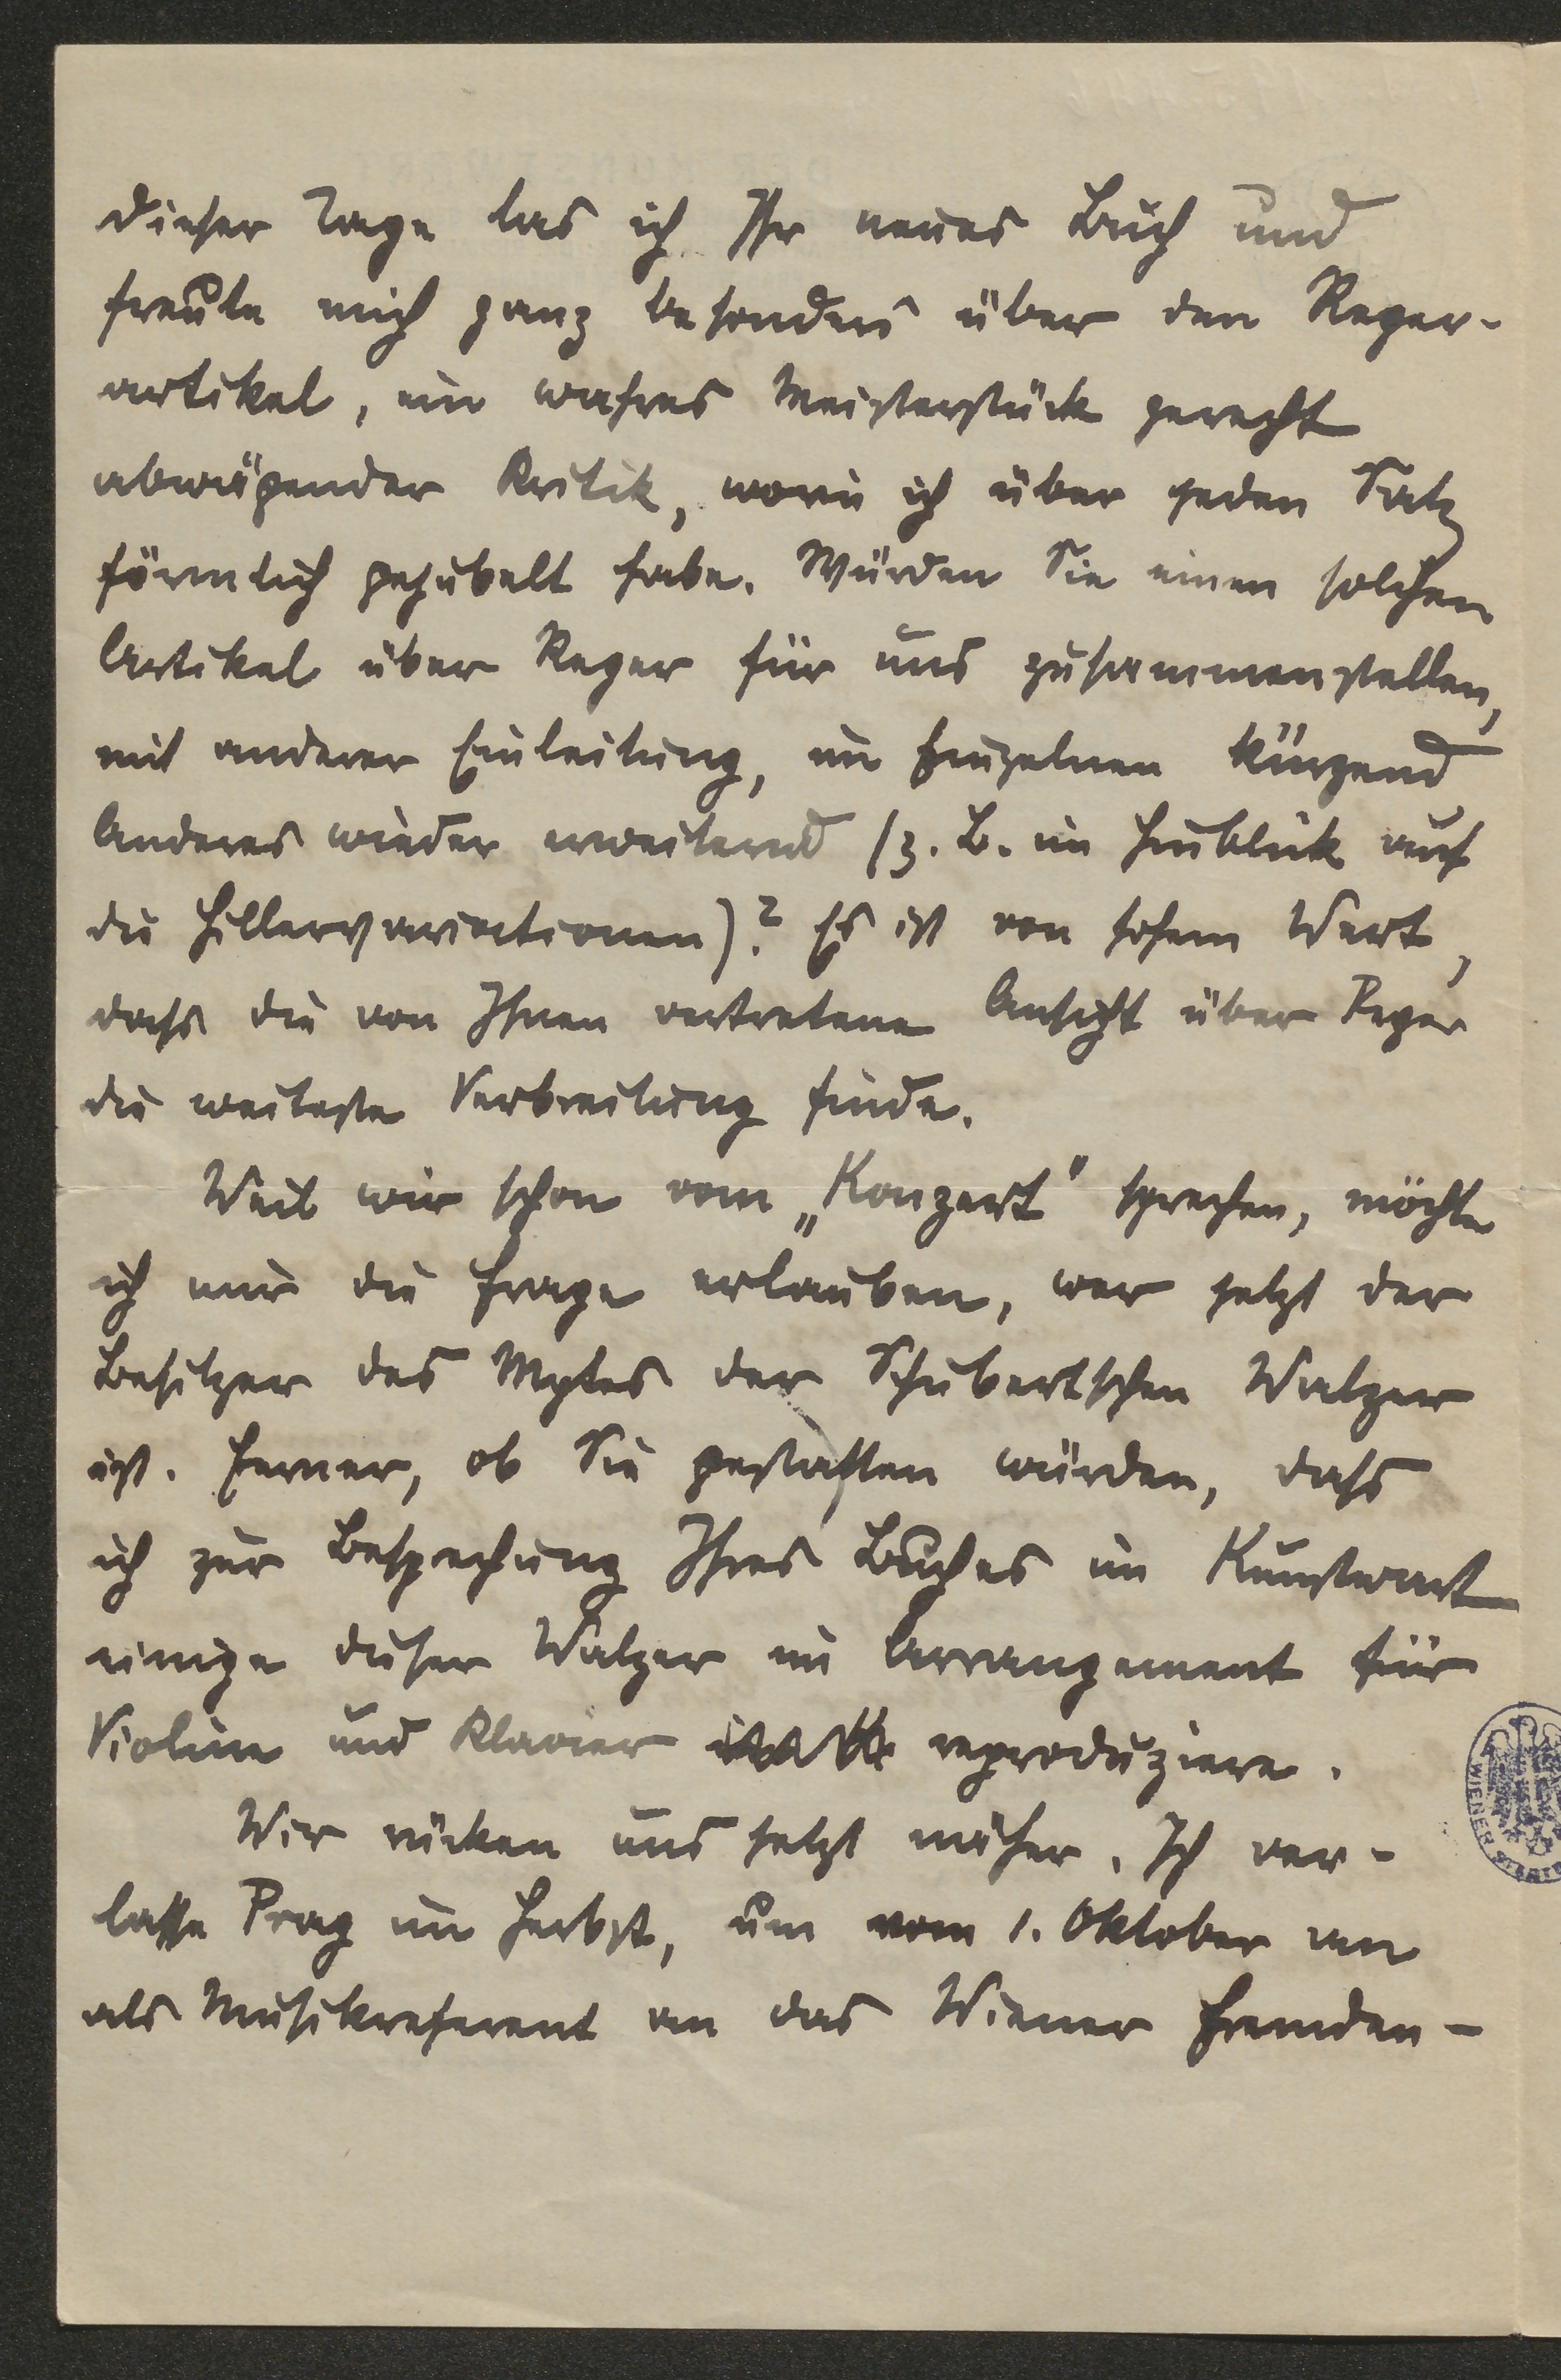 Dieser Tage las ich Ihr neues Buch und
freute mich ganz besonders über den Reger-
artikel, ein wahres Meisterstück gerecht
abwägender Kritik, worin ich über jeden Satz
förmlich gejubelt habe. Würden Sie einen solchen
Artikel über Reger für uns zusammenstellen,
mit anderer Einleitung, im Einzelnen kürzend
Anderes wieder erweiternd (z. B. im Hinblick auf
die Hillervariationen)? Es ist von hohem Wert,
dass die von Ihnen vertretene Ansicht über Reger
die weiteste Verbreitung finde.
Weil wir schon vom „Konzert" sprechen, möchte
ich mir die Frage erlauben, wer jetzt der
Besitzer des Msptes der Schubertschen Walzer
ist. Ferner, ob Sie gestatten würden, dass
ich zur Besprechung Ihres Buches im Kunstwart
einige dieser Walzer im Arrangement für
Violine und Klavier reproduziere.
Wir rücken uns jetzt näher. Ich ver-
lasse Prag im Herbst, um vom 1. Oktober an
als Musikreferent an das Wiener Fremden-
WIENER